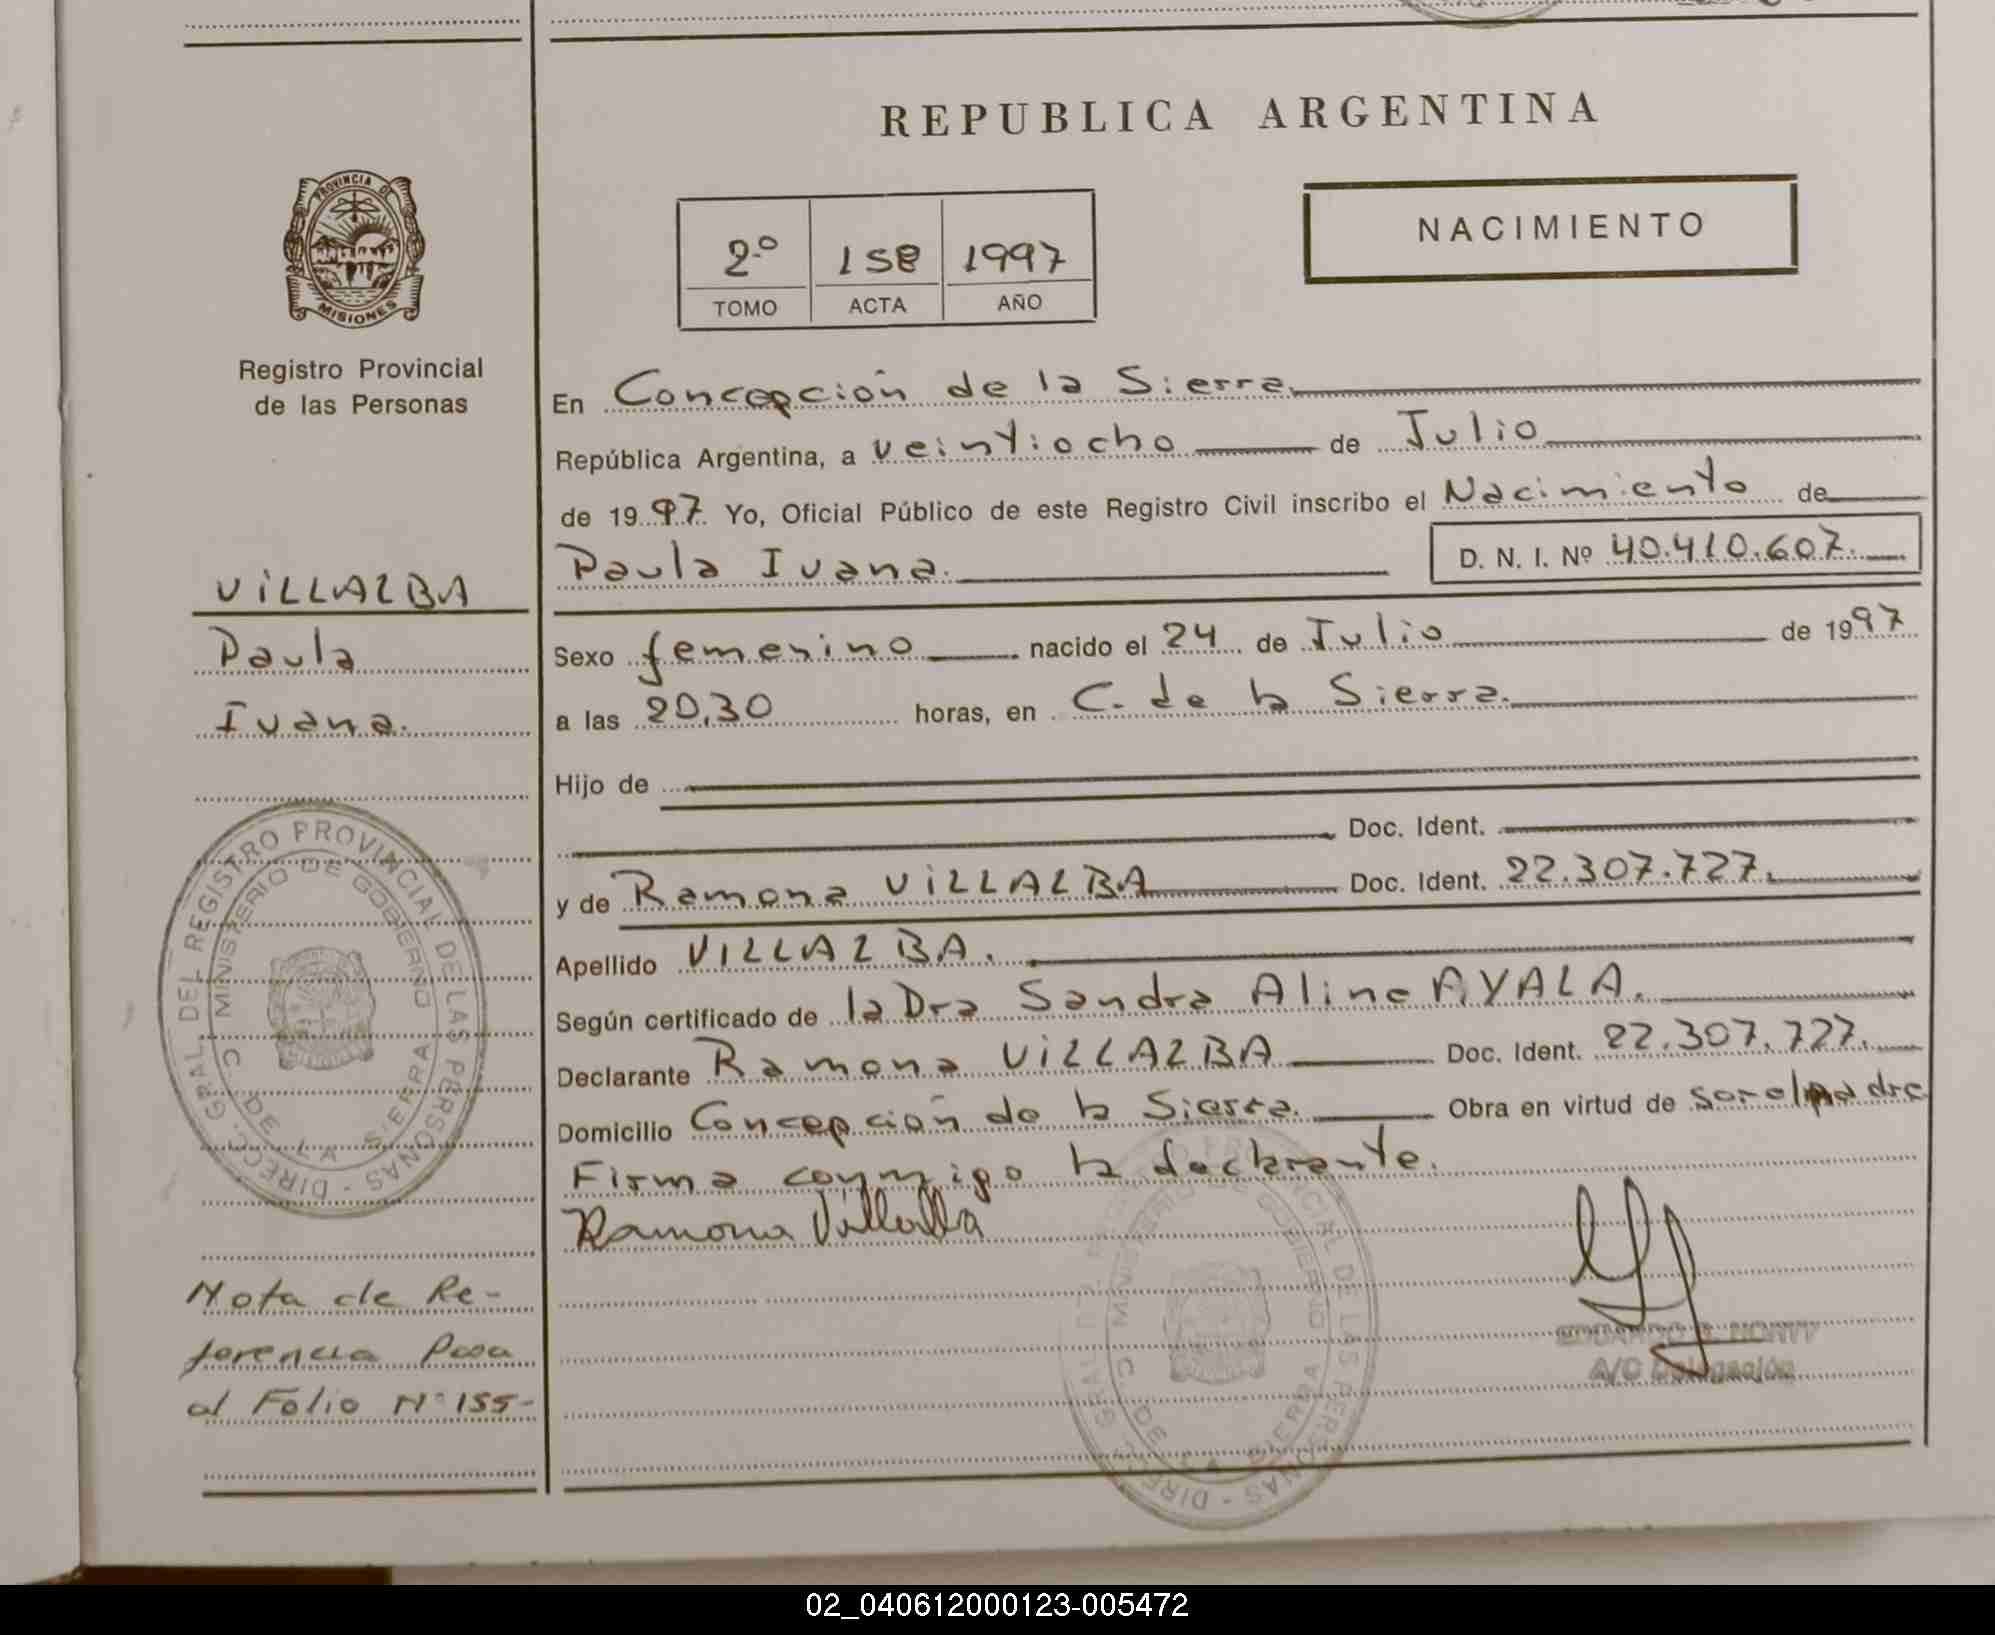 REPUBLICA ARGENTINA
PROVINCIA DE
MISIONES
Registro Provincial
de las Personas
NACIMIENTO
2º 158 1997
TOMO ACTA AÑO
En Concepción de la Sierra
República Argentina, a veintiocho de Julio
de 1997 Yo, Oficial Público de este Registro Civil inscribo el Nacimiento de
Paula Ivana. D. N. I. Nº 40.410.607.
VILLALBA
Paula
Ivana.
Sexo femenino nacido el 24 de Julio de 1997
a las 20,30 horas, en C. de la Sierra.
Hijo de
Doc. Ident.
y de Ramona VILLALBA Doc. Ident. 22.307.727.
Apellido VILLALBA.
Según certificado de la Dra Sandra Aline AYALA.
Declarante Ramona VILLALBA Doc. Ident. 22.307.727.
Domicilio Concepción de la Sierra. Obra en virtud de ser el padre
Firma conmigo la declarante.
Ramona Villalba
DIRECC. GRAL. DEL REGISTRO PROVINCIAL DE LAS PERSONAS
MINISTERIO DE GOBIERNO
C. DE LA SIERRA
DIRECC. GRAL. DEL REGISTRO PROVINCIAL DE LAS PERSONAS
MINISTERIO DE GOBIERNO
C. DE LA SIERRA
EDUARDO
A/C Delegación
Nota de Re-
ferencia Pasa
al Folio Nº 155-
02_040612000123-005472